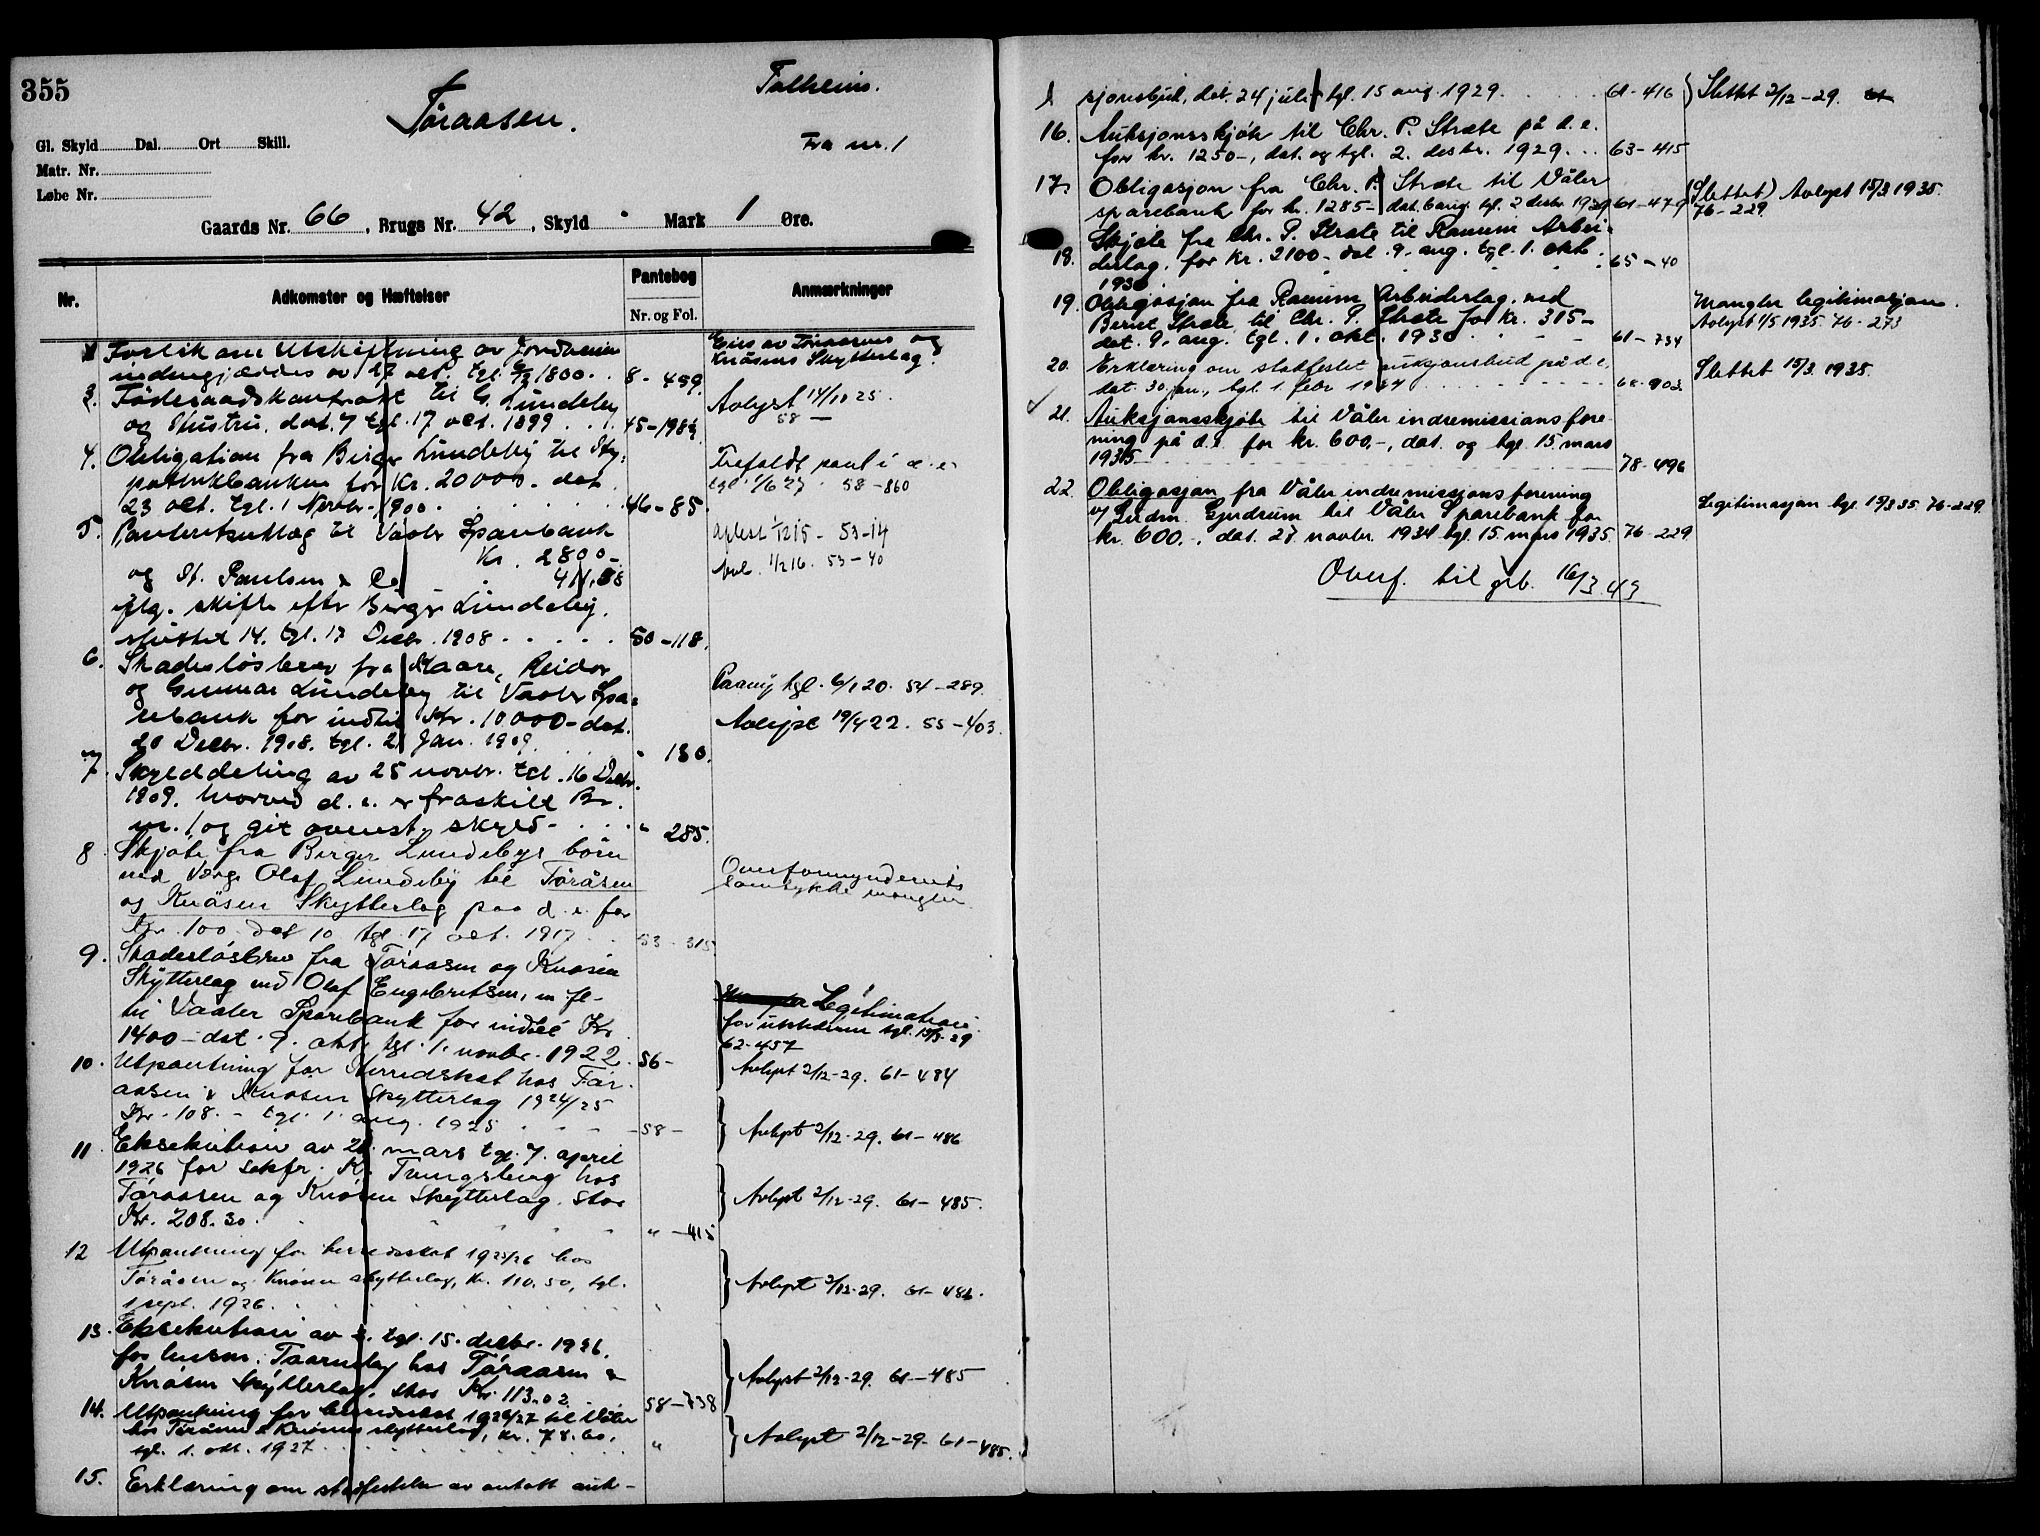 355
Tøraasen.
Folkeim.
Fra nr. 1
Gl. Skyld Dal. Ort Skill.
Matr. Nr.
Løbe Nr.
Gaards Nr. 66, Brugs Nr. 42, Skyld - Mark 1 Øre.
Nr.
Adkomster og Hæftelser
Pantebog
Nr. og Fol.
Anmærkninger
Forlik om Utskiftning av Jordveien
indengjærdes av 17 oct. tgl. 1800. 8-499
Eies av Tøraasens og
Knåsens Skytterlag.
3. Føderaadskontrakt til G. Lundeby
og Hustru, dat. 7 tgl. 17 oct. 1899 . . 45-198
Avlyst 14/10 25.
58 —
4. Obligation fra Birger Lundeby til Hy-
potekbanken for Kr. 20000.- dat.
23 oct. tgl. 1 Novbr. 1900. 46-85.
Frafaldt pant i d. e.
tgl. 1/6 27. 58-860
5. Panteretsutlæg til Vaaler Sparebank
Kr. 2800-
og St. Paulsen & Co - 411,88
iflg. skifte efter Birger Lundeby.
sluttet 14. tgl. 17 Decbr. 1908 . . . . . 50-118.
Aflest 1/12 15 - 53-14
1/2 16. 53-40
6. Skadesløsbrev fra Kaare, Reidar
og Gunnar Lundeby til Vaaler Spa-
rebank for indtil Kr. 10000- dat.
20 Decbr. 1908. tgl. 2 Jan. 1909. " 130.
Paany tgl. 6/1 20. 54-289.
Avlyst 19/4 22. 55-403.
7. Skylddeling av 25 novbr. tgl. 16 Decbr.
1909. hvorved d. e. er fraskilt Br.
nr. 1 og git ovenst. skyld- . . . " 285.
8. Skjøte fra Birger Lundebys børn
ved Værge Olaf Lundeby til Tøråsen
og Knåsen Skytterlag paa d. e. for
Kr. 100 dat 10 tgl. 17 oct. 1917 . . 53-315
Overformynderiets
samtykke mangler.
9. Skadesløsbrev fra Tøraasen og Knåsen
Skytterlag ved Olaf Engebretsen, m fl-
til Vaaler Sparebank for indtil Kr.
1400- dat. 9. okt. tgl. 1. novbr. 1922. 56-
Legitimation
for utstederne tgl. 15/3-29
62-457
Avlyst 2/12-29. 61-484
10. Utpantning for Herredskat hos Tør-
aasen & Knåsen Skytterlag 1924/25
Kr. 108.- tgl. 1. aug. 1925 - - - -58-
Avlyst 2/12-29. 61-486
11. Eksekution av 26. mars tgl. 7. april
1926 for sakfr. K. Tvengsberg hos
Tøraasen og Knåsen Skytterlag. stor
Kr. 208.30. " -415
Avlyst 2/12-29. 61-485.
12 Utpantning for herredsskat 1925/26 hos
Tøråsen og Knåsen skytterlag, kr. 110.50, tgl.
1 sept. 1926. . . . "
Avlyst 2/12-29. 61-486.
13. Eksekution av tgl. 15. decbr. 1926.
for lensm. Taarneby hos Tøraasen &
Knåsen Skytterlag. stor Kr. 113.02. 58-738
Avlyst 2/12-29. 61-485
14. Utpantning for herredsskat 1926/27 til Våler
hos Tøråsen & Knåsens skytterlag, kr. 78.60,
tgl. 1. okt. 1927. . . . "
Avlyst 2/12-29- 61-485.
15. Erklæring om stadfestelse av antatt auk-
sjonsbud, dat. 24 juli tgl. 15 aug. 1929. . . . 61-416 Slettet 2/12-29.
16. Auksjonsskjøte til Chr. P. Stræte på d. e.
for kr. 1250-, dat. og tgl. 2. desbr. 1929. . . 63-415
17. Obligasjon fra Chr. P. Stræte til Våler
sparebank for kr. 1285- dat. 6 aug. tgl. 2 desbr. 1929 61-479
(Slettet) Avlyst 15/3 1935.
76-229.
18. Skjøte fra Chr. P. Stræte til Ramum Arbei-
derlag, for kr. 2100- dat. 9. aug. tgl. 1. okt.
1930. 65-40
19. Obligasjon fra Ramum Arbeiderlag. ved
Bernt Stræte, til Chr. P. Stræte for kr. 315-
dat. 9. aug. tgl. 1. okt. 1930 . - - - 61-734
Mangler legitimasjon.
Avlyst 1/5 1935. 76-273
20. Erklæring om stadfestet auksjonsbud på d e.
dat. 30. jan., tgl. 1 febr 1934 . . . . 68-903
Slettet 15/3. 1935.
21. Auksjonsskjøte til Våler indremissions fore-
ning på d. e. for kr. 600.-, dat. og tgl. 15 mars
1935 78-496
22. Obligasjon fra Våler indremissions forening
v/ Gjerdrum til Våler Sparebank for
kr. 600.-, dat. 27 novbr. 1934 tgl. 15. mars 1935. 76-229
Legitimasjon tgl. 15/3 35. 76-229.
Overf. til grb. 16/3 49